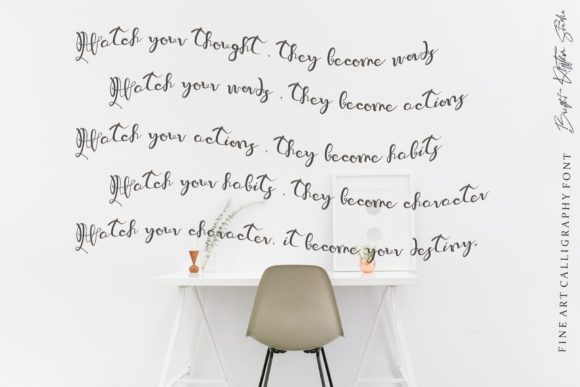 Watch your thought , they become words
Watch your words , they become actions
Watch your actions , they become habits
Watch your habits , they become character
Watch your character, it become your destiny.
Studio
FINE ART CALLIGRAPHY FONT